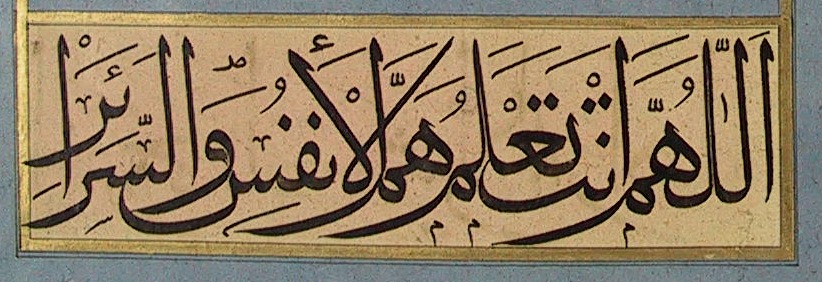 اللهم انت تعلم هم الأنفس والسرائر